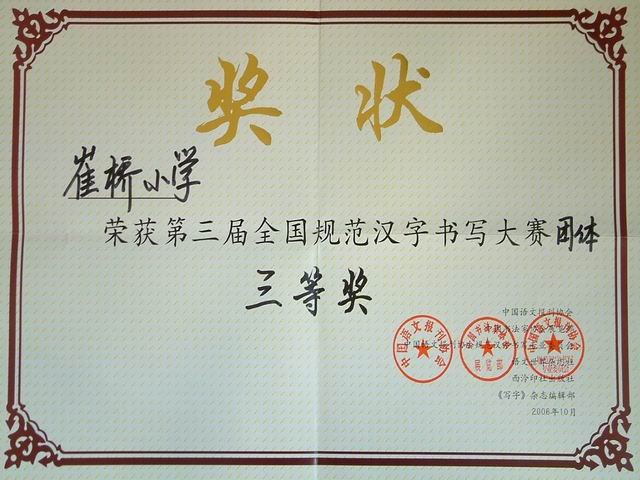 奖状
崔桥小学
荣获第三届全国规范汉字书写大赛团体
三等奖
中国语文报刊协会
西泠印社出版社
《写字》杂志编辑部
2006年10月
中国语文报刊协会
展览部